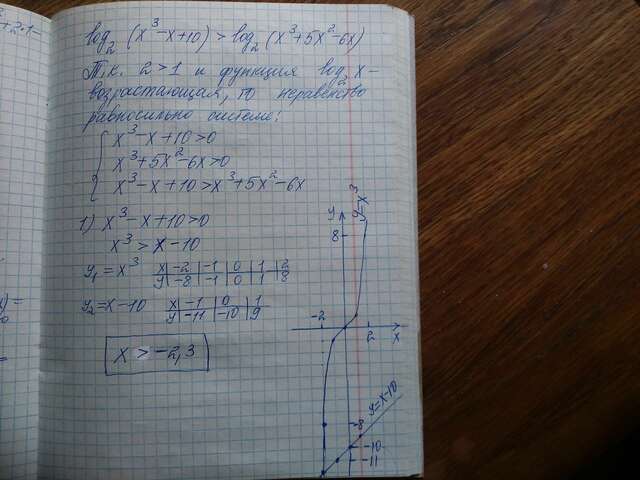 log₂(x³-x+10) > log₂(x³+5x²-6x)
Т.к. 2>1 и функция log₂ x -
возрастающая, то неравенство
равносильно системе:
x³-x+10>0
x³+5x²-6x>0
x³-x+10>x³+5x²-6x
1) x³-x+10>0
x³ > x-10
y₁=x³
x | -2 | -1 | 0 | 1 | 2
y | -8 | -1 | 0 | 1 | 8
y₂=x-10
x | -1 | 0 | 1
y | -11 | -10 | 9
x > -2,3
y
y=x³
8
-2
2
x
y=x-10
-8
-10
-11